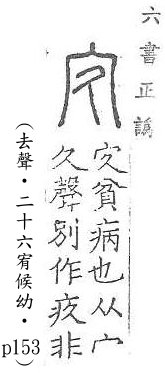 六書正譌
㝌
㝌貧病也从宀
久聲別作疚非
（去聲・二十六宥候幼・p153）